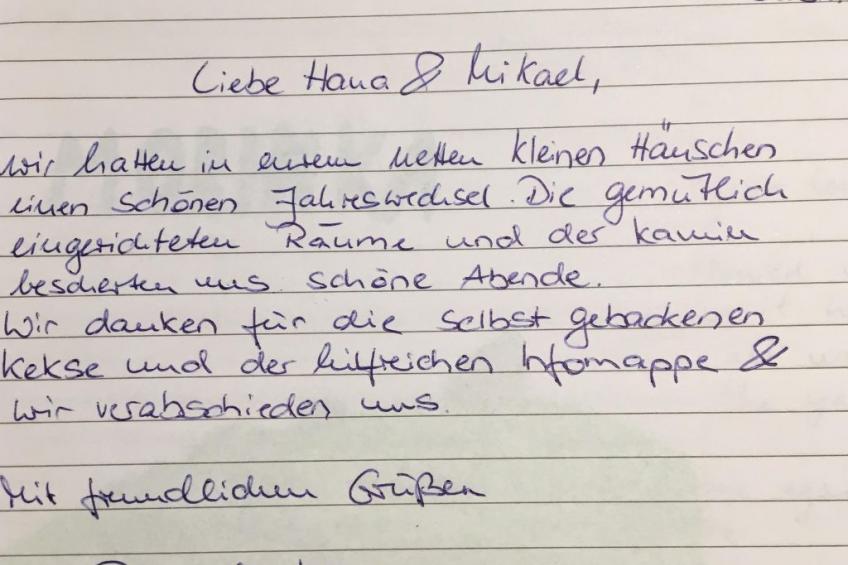 Liebe Hana & Mikael,
wir hatten in eurem netten kleinen Häuschen
einen schönen Jahreswechsel. Die gemütlich
eingerichteten Räume und der Kamin
bescherten uns schöne Abende.
Wir danken für die selbst gebackenen
Kekse und der hilfreichen Infomappe &
wir verabschieden uns.
Mit freundlichen Grüßen